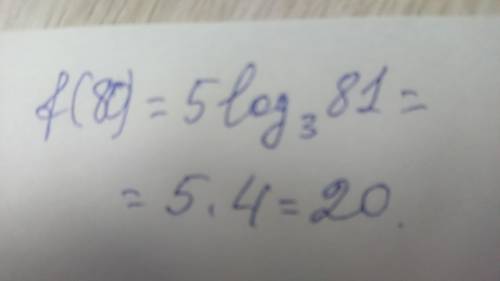 f(80) = 5 log₃ 81 =
= 5 . 4 = 20 .